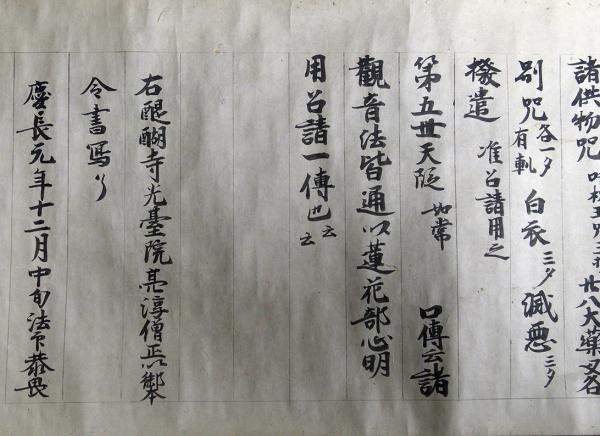 諸供物咒 廿八大藥叉各
別咒各一夕有軌 白衣三夕 滅惡三夕
撥遣 准召請用之
第五世天院 如常 口傳云諸
觀音法皆通以蓮花部心明
用召請一傳也云云
右醍醐寺光臺院亮淳僧正以御本
令書寫了
慶長元年十二月中旬法下恭畏